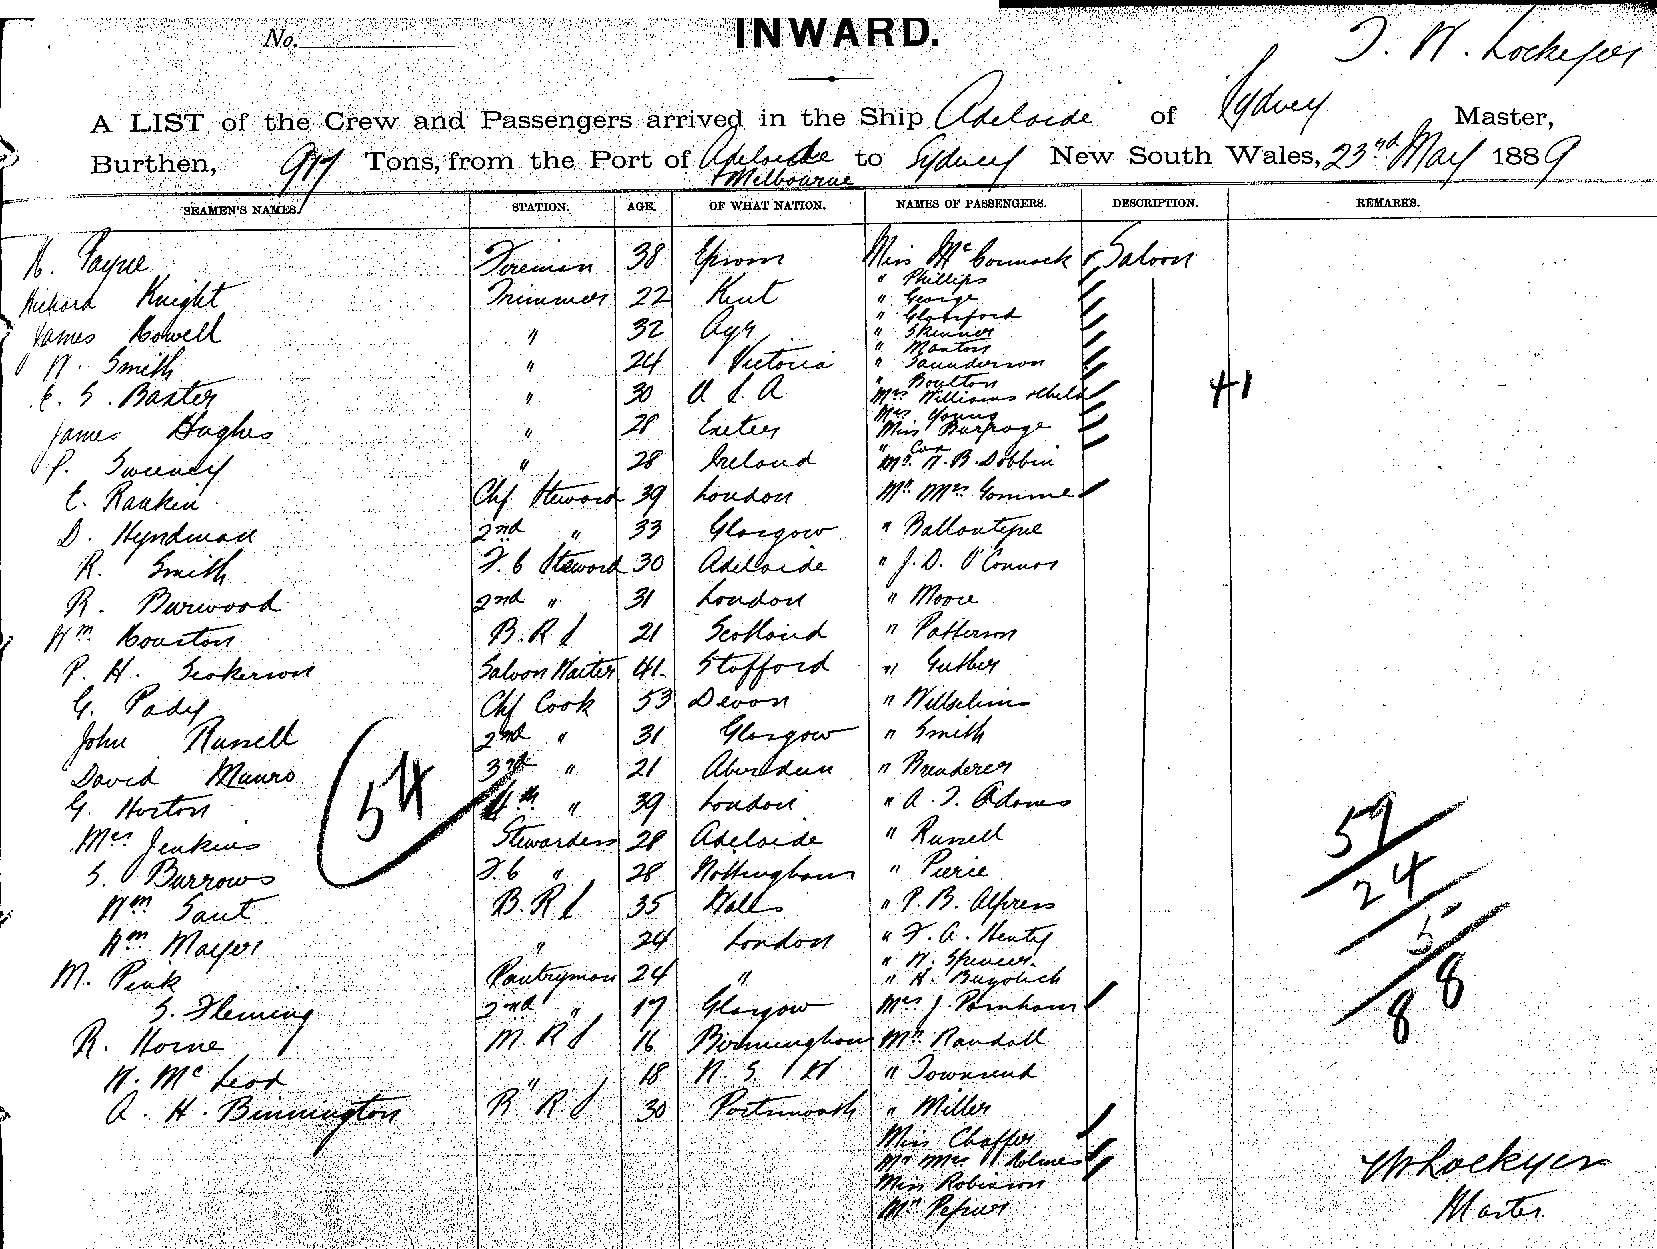 No.
INWARD.
T. W. Lockyer
A LIST of the Crew and Passengers arrived in the Ship Adelaide of Sydney Master,
Burthen, 917 Tons, from the Port of Adelaide + Melbourne to Sydney New South Wales, 23rd May 1889
SEAMEN'S NAMES. STATION. AGE. OF WHAT NATION. NAMES OF PASSENGERS. DESCRIPTION. REMARKS.
H. Payne Foreman 38 Epsom Miss McCormack Saloon
" Phillips
Richard Knight Trimmer 22 Kent " George
" Glassford
James Howell " 32 Ayr " Skinner
" Manton
W. Smith " 24 Victoria " Saunderson
" Boulton
E. S. Baxter " 30 U S A Mrs Williams + child 41
Mrs Young
James Hughes " 28 Exeter Miss Burpage
" Cox
P. Sweeney " 28 Ireland Mr. W. B. Dobbin
E. Rankin Chf Steward 39 London Mr Mrs Gomme
D. Hyndman 2nd " 33 Glasgow " Ballantyne
R. Smith F. C Steward 30 Adelaide " J. D. O'Connor
R. Burwood 2nd " 31 London " Moore
Wm Houston B. R S 21 Scotland " Patterson
P. H. Saloon Waiter 41. Stafford "
G. Pady Chf Cook 53 Devon " Wilhelms
John Russell 2nd " 31 Glasgow " Smith
David Munro 3rd " 21 Aberdeen " Bruderer
54
G. Horton 4th " 39 London " A. T. Adams
Mrs Jenkins Stewardess 28 Adelaide " Russell
59
S. Burrows F. C " 28 Nottingham " Pierie
24
Wm Saut B. R S 35 Wales " P. B. Alpress
5
Wm Mayer " 24 London " F. A. Henty
" W. Spencer
M. Pink Pantryman 24 " " H.
88
S. Fleming 2nd " 17 Glasgow Mrs J. Parnham
R. Horne M. R S 16 Birmingham Mr. Randall
W. McLeod " 18 N. S. W " Townsend
A. H. Bennington B R S 30 Portsmouth " Miller
Miss Chaffer
Mr Mrs Holmes
TW Lockyer
Miss Robinson
Master
Mr